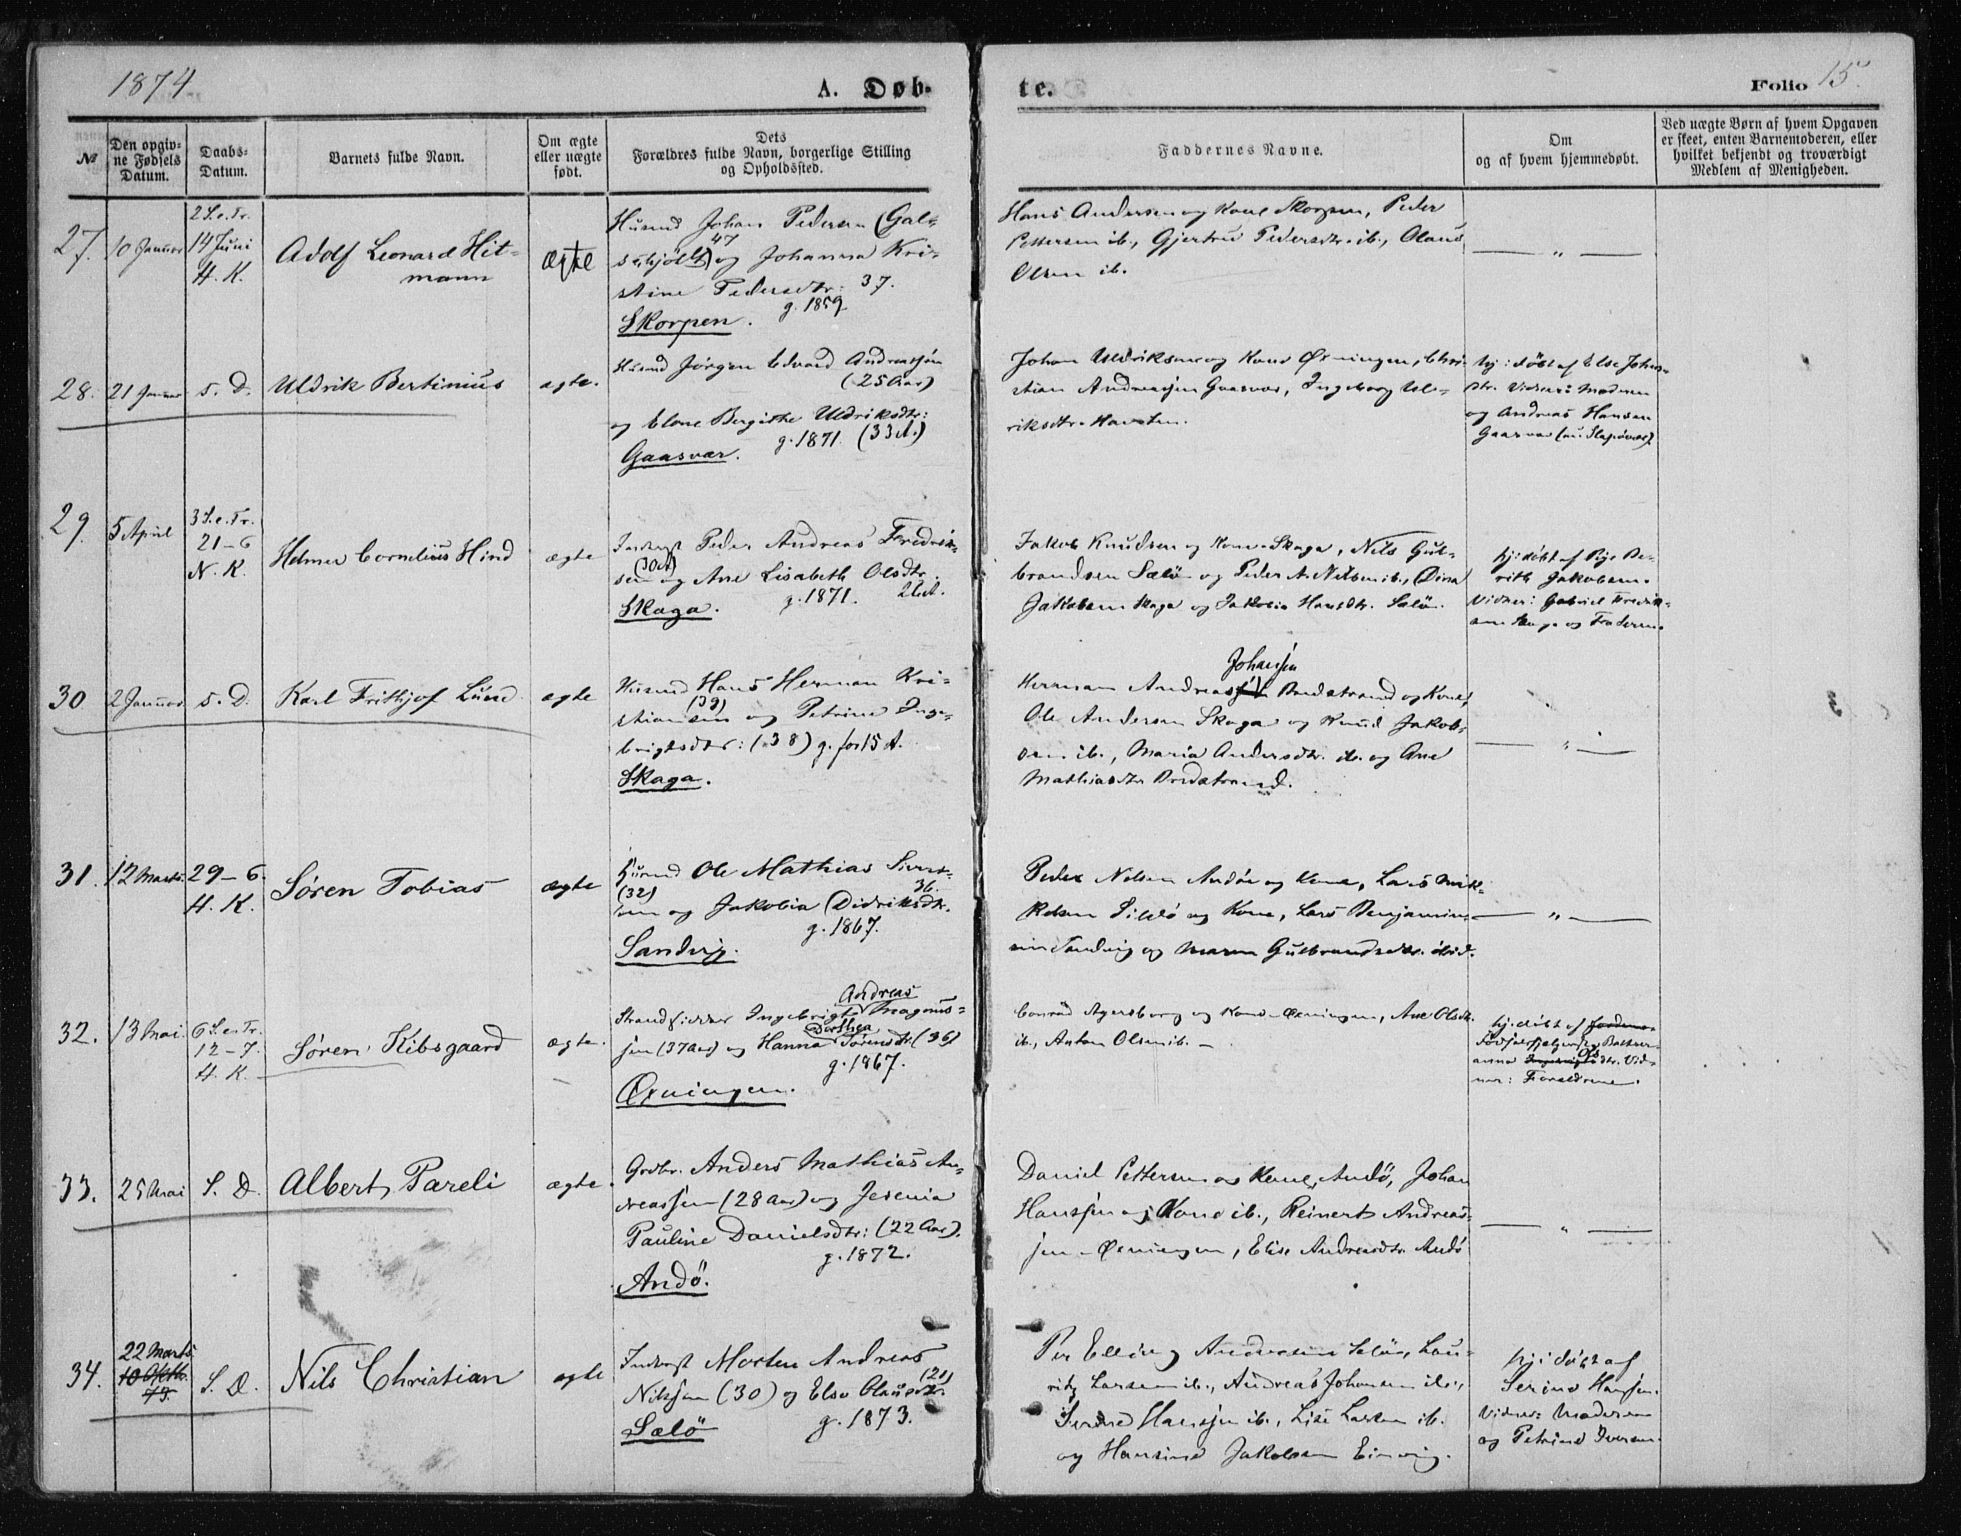 1874
A. Døb-
te.
Folio 15.
№
Den opgiv-
ne Fødsels
Datum.
Daabs-
Datum.
Barnets fulde Navn.
Om ægte
eller uægte
født.
Dets
Forældres fulde Navn, borgerlige Stilling
og Opholdssted.
Faddernes Navne.
Om
og af hvem hjemmedøbt.
Ved uægte Børn af hvem Opgaven
er skeet, enten Barnemoderen, eller
hvilket bekjendt og troværdigt
Medlem af Menigheden.
27.
10 Januar
2 S. e. Tr.
14 Juni
H. K.
Adolf Leonard Hit-
mann
ægte
Husmd Johan Pedersen (Gal-
47
og Johanna Kri-
stine Pedersdtr: 37.
g. 1859
Skorpen.
Hans Andersen og Kone Skorpen, Peder
Pettersen ib., Gjertru Pedersdtr. ib., Olaus
Olsen ib.
— " —
28.
21 Januar
s. D.
Uldrik Bertinius
ægte.
Husmd Jørgen Edvard Andreassen
(25 Aar)
og Elone Bergithe Uldriksdtr:
g. 1871. (33 A.)
Gaasvær.
Johan Uldriksen og Kone Øxningen, Chri-
stian Andreassen Gaasvær, Ingeborg Ul-
riksdtr.
hj: døbt af Else Johns-
dtr. Vidner: Moderen
og Andreas Hansen
Gaasvær
29.
5 April
3 S. e. Tr.
21-6
N. K.
Helmer Cornelius Hind
ægte
Inderst Peder Andreas Fredrik-
sen og Ane Lisabeth Olsdtr.
g. 1871.
Skaga.
Jakob Knudsen og Kone Skaga, Nils Gul-
brandsen Sælø og Peder A. Nilsen ib., Dina
Jakobsen Skaga og Jakobia Hansdtr. Sælø.
hj: døbt af
Jakobsen.
Vidner: Gabriel Fredrik-
sen Skaga og Faderen.
30
2 Januar
s. D.
Karl Frithjof Lund
ægte
Husmd Hans Herman Kri-
(39)
stiansen og Petrine Inge-
brigtsdtr: (38) g. for 15 A.
Skaga.
Johansen
Herman Andreas Bredstrand og Kone,
Ole Andersen Skaga og Knud Jakob-
sen ib., Maria Andersdtr. ib. og Ane
Mathiasdtr Bredstrand.
— " —
31.
12 Marts.
29-6.
H. K.
Søren Tobias
ægte
Husmd Ole Mathias Sivert-
(32) 36.
sen og Jakobia Didriksdtr.
g. 1867.
Sandvig.
Peder Nilsen Andøe og Kone, Lars Mik-
kelsen Sildø og Kone, Lars Benjamin-
sen Sandvig og Maren Gulbrandsdtr. ibid.
— " —
32.
13 Mai.
6 S. e. Tr.
12-7.
H. K.
Søren Kibsgaard
ægte.
Andreas
Strandsidder Ingebrigt Magnus-
Dorthea
sen (37 Aar) og Hanna Sørensdtr (36)
g. 1867.
Øxningen.
Conrad Agersborg og Kone Øxningen, Ane Olsdtr.
ib., Anton Olsen ib. —
hj: døbt af
Ols
dtr. Vid-
ner: Forældrene.
33.
25 Mai
S. D.
Albert Pareli
ægte.
Grdbr. Anders Mathias An-
dreassen (28 Aar) og Jesenia
Pauline Danielsdtr: (22 Aar).
g. 1872.
Andö.
Daniel Pettersen og Kone, Andø, Johan
Hanssen og Kone ib., Reinert Andreas-
sen Øxningen, Elise Andreasdtr. Andö
— " —
34.
22 Marts
S. D.
Nils Christian
ægte
Inderst Morten Andreas
Nilssen (30) og Else Olausdtr.
g. 1873.
Sælö
Per Elling Andersen Seløe, Lau-
ritz Larsen ib., Andreas Johansen ib.,
Serine Hanssen ib., Lise Larsen ib.
og Hansine Jakobsen Einvig.
hj: døbt af
Serine Hanssen.
Vidner: Moderen
og Petrine Iversen.